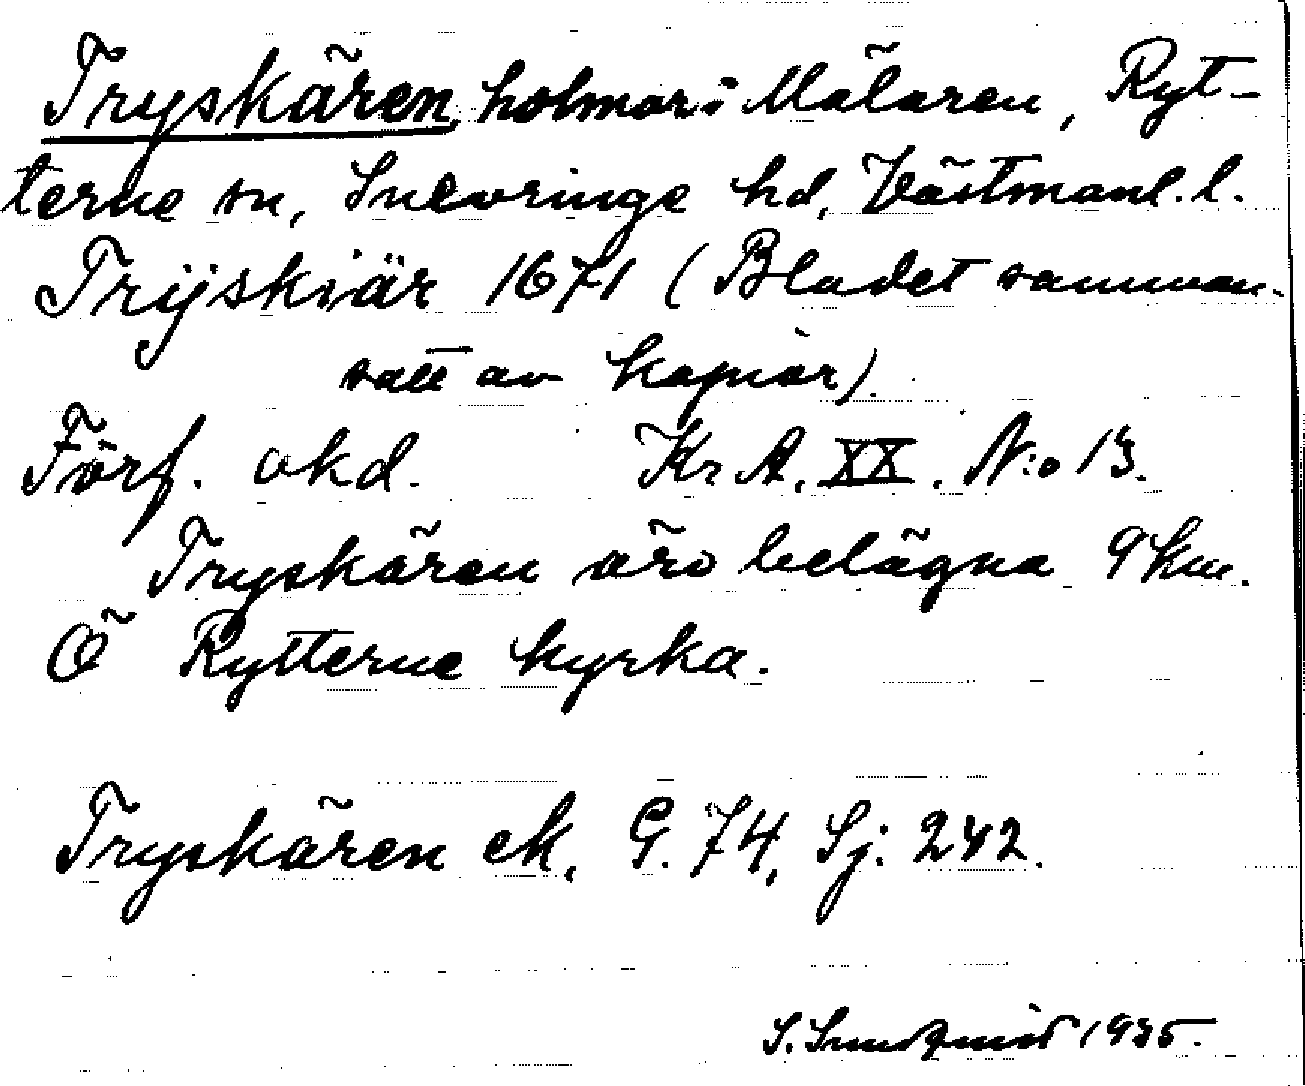 Tryskären, holmar i Mälaren, Ryt-
terne sn, Snevringe hd, Västmanl. l.
Trÿskiär 1671 (Bladet samman-
satt av kopior).
Förf. okd. Kr A. XX. N:o 13.
Tryskären äro belägna 9 km.
Ö Rytterne kyrka.
Tryskären ek, G. 74, Sj: 242.
S. Sundqvist 1935.